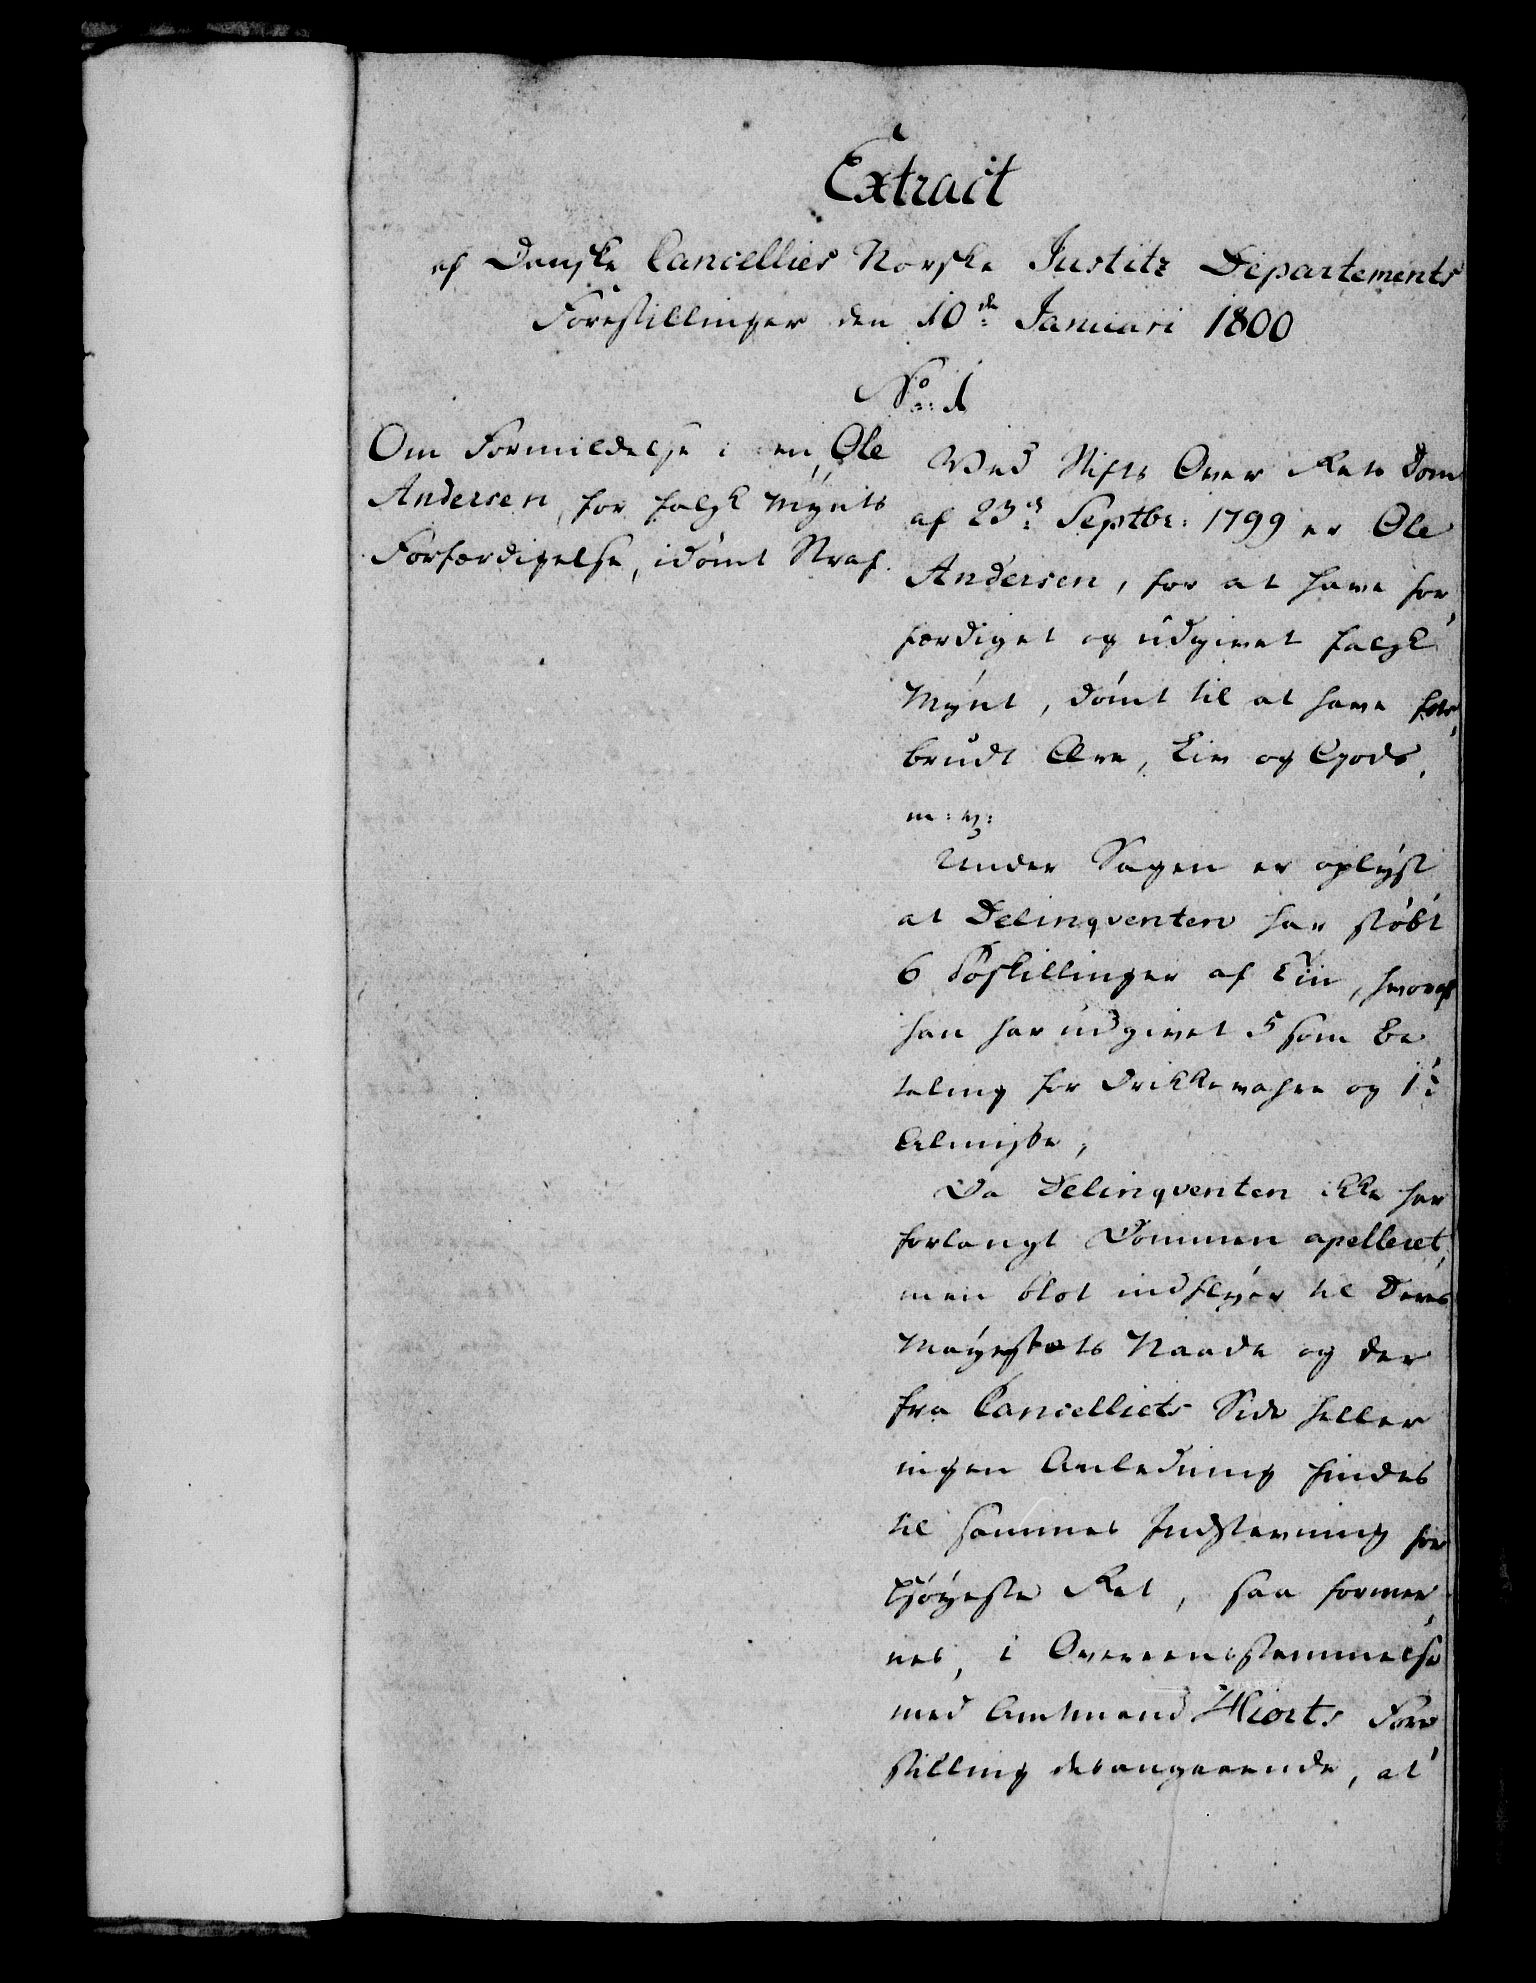 Extract
af Danske Cancellies Norske Justitz Departements
Forestillinger den 10de Januari 1800
No 1
Om Formildelse i en, Ole
Andersen, for falsk Mynts
Forfærdigelse, idømt Straf.
Ved Stifts Over Rets Dom
af 23de Septbr: 1799 er Ole
Andersen, for at have for,
færdiget og udgivet falsk
Mynt, dømt til at have for,
brudt Ære, Liv og Gods,
m: v:
Under Sagen er oplyst
at Delinqventen har støbt
6 Toskillinger af Tin, hvoraf
han har udgivet 5 som Be
taling for Drikkevahre og 1 i
Almisse,
Da Delinqventen ikke har
forlangt Dommen apelleret,
men blot indflyer til Deres
Mayestæts Naade og der
fra Cancelliets Side heller
ingen Anledning findes
til sammes Indstevning for
Høyeste Ret, saa formee,
nes, i Overeensstemmelse
med Amtmand Hiorts Fore,
stilling desangaaende, at